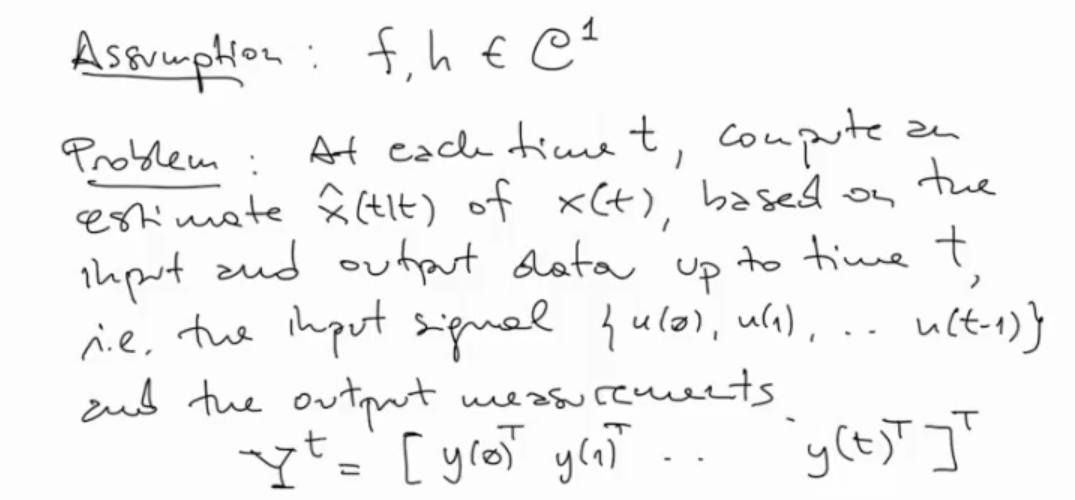 Assumption : f, h ∈ C¹
Problem : At each time t, compute an
estimate x̂(t|t) of x(t), based on the
input and output data up to time t,
i.e. the input signal { u(0), u(1), .. u(t-1)}
and the output measurements
Yᵗ = [ y(0)ᵀ y(1)ᵀ .. y(t)ᵀ ]ᵀ